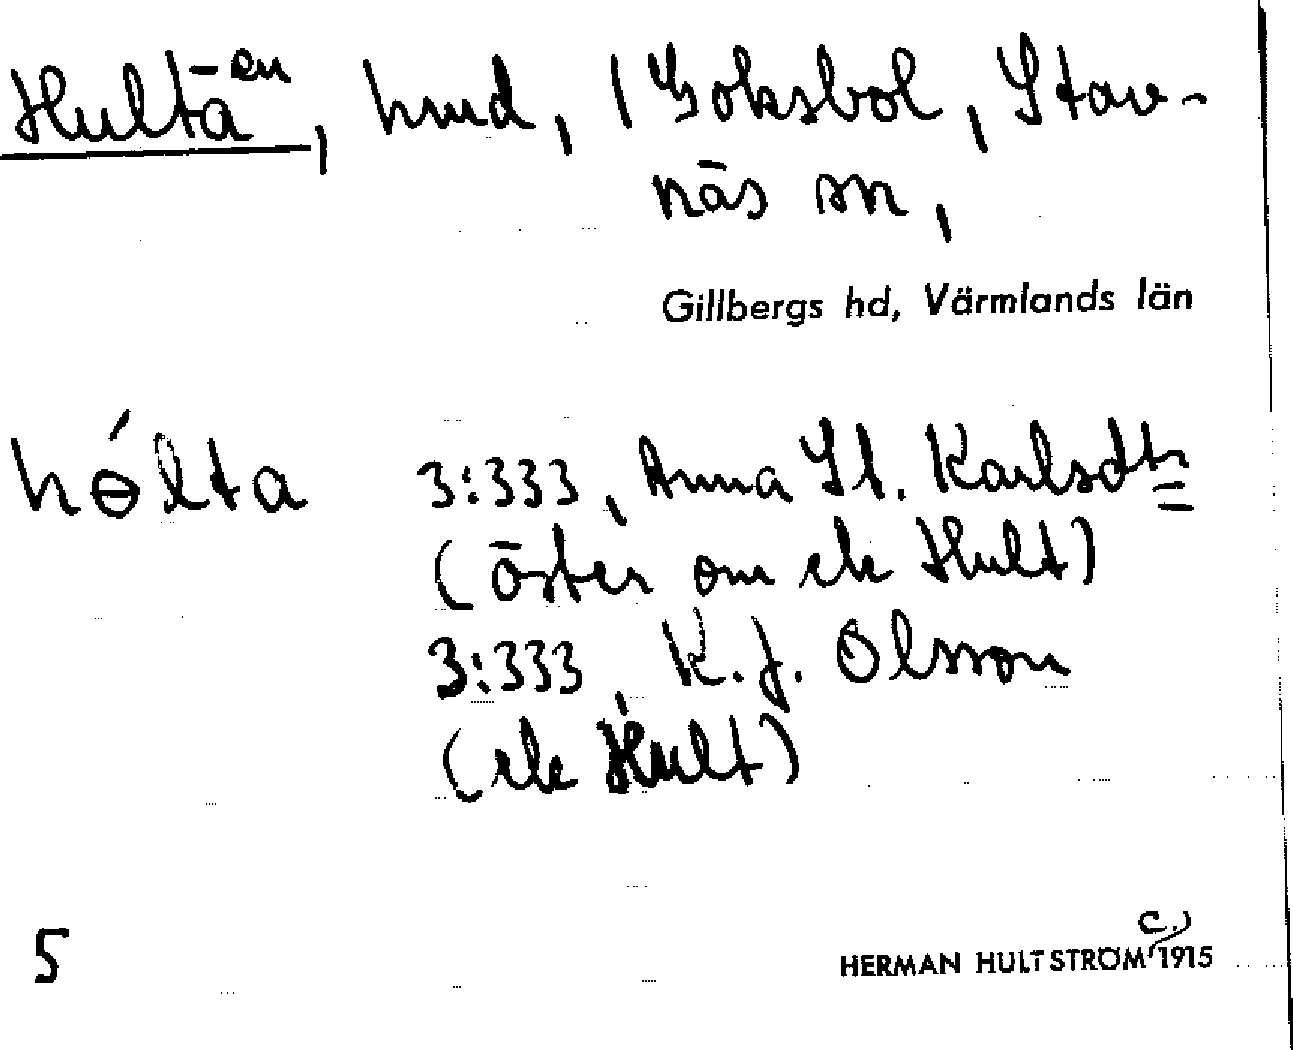 Hultaen, hmd, 1 Goksbol, Stav-
näs sn,
Gillbergs hd, Värmlands län
hɵ́lta 3:333, Anna St. Karlsdtr
(öster om ek Hult)
3:333, K. J. Olsson
(ek Hult)
5 HERMAN HULTSTRÖM c.) 1915